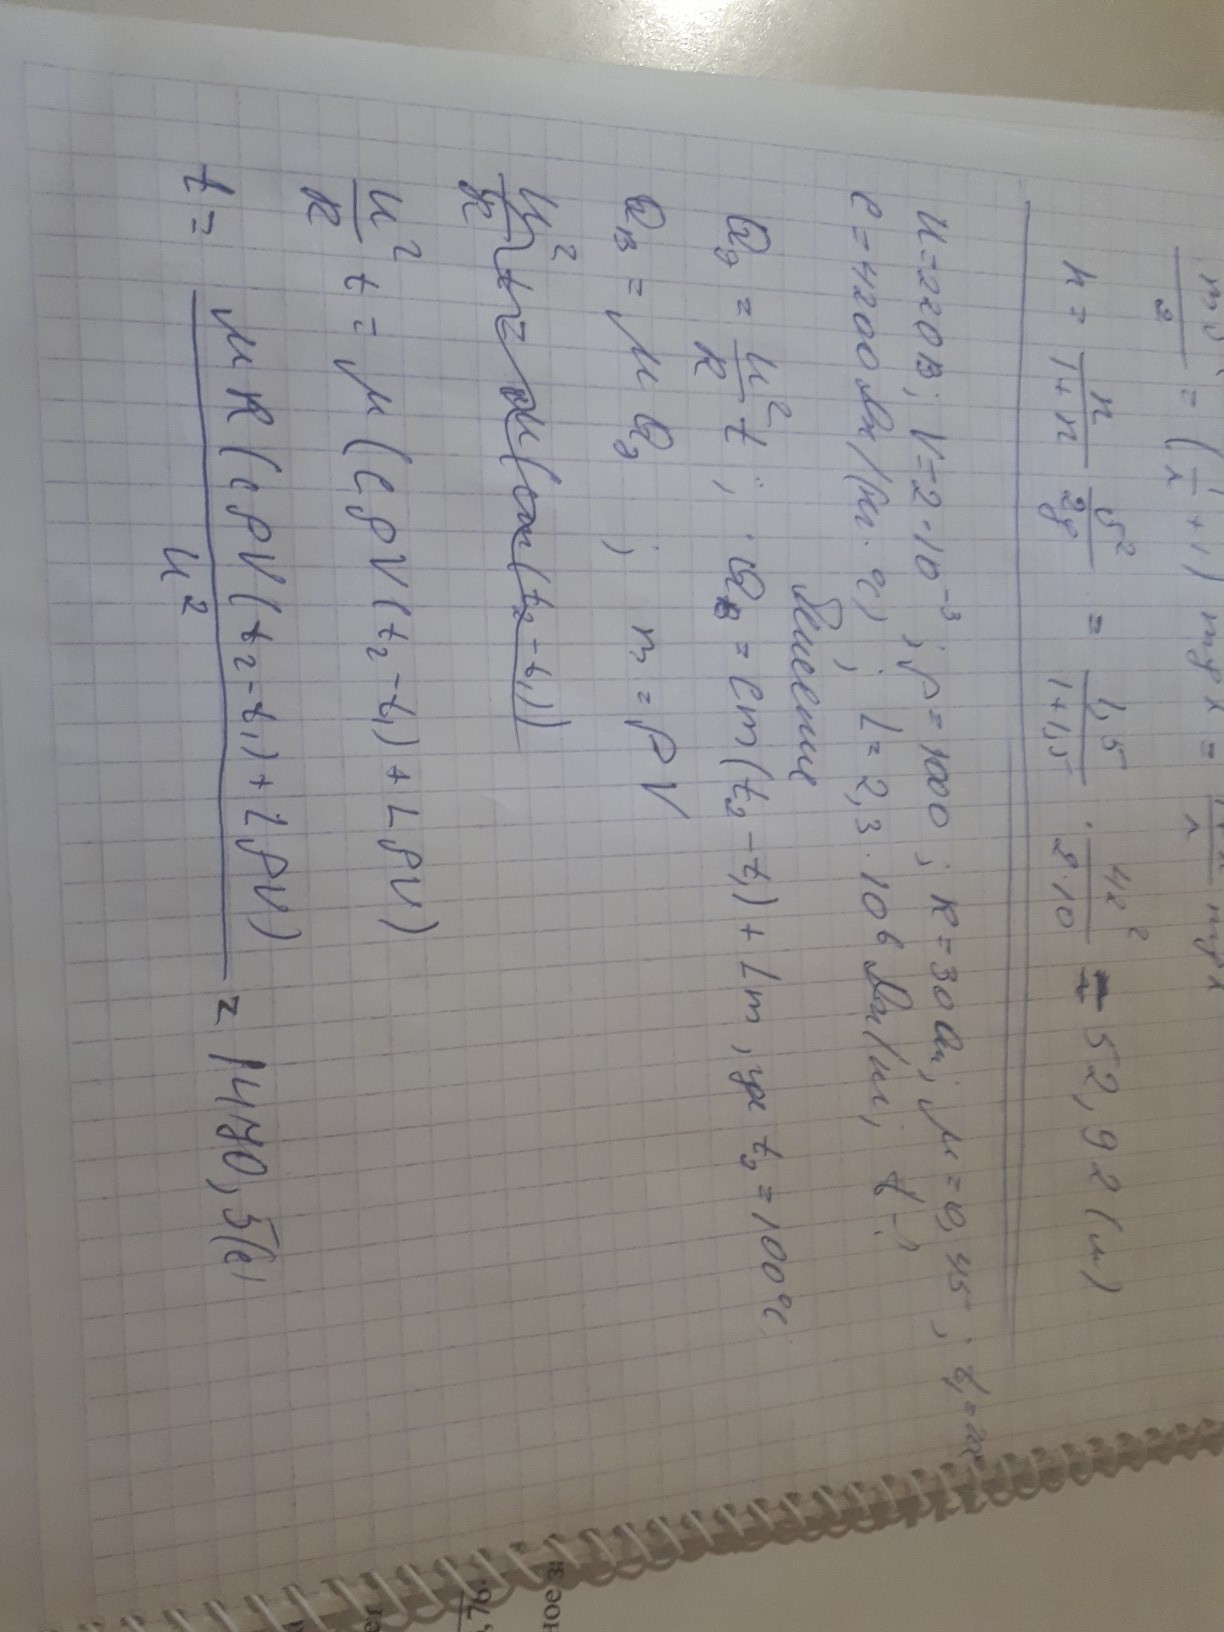 mv² / 2 = (1/k + 1) mgx =
h = k/(1+k) v²/2g = 1,5/(1+1,5) · 42²/(2·10) = 52,92 (м)
U=220В; V=2·10⁻³; ρ=1000; R=30 Ом; μ=0,45; t₁=20
c=4200 Дж/(кг·°С); L=2,3·10⁶ Дж/кг; t-?
Решение
Qэ = U²/R t; Qв = cm(t₂-t₁)+Lm, где t₂=100°С
Qв = μ Qэ; m = ρV
U²/R t = μ(cm(t₂-t₁))
U²/R t = μ(cρV(t₂-t₁)+LρV)
t = μR(cρV(t₂-t₁)+LρV) / U² = 1470,5(с)
,76.
ное з